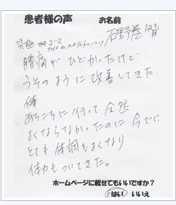 患者様の声 お名前
石野巻 智
腰痛がひどかったけど
うそのように改善してきた。
体
あちこちに行って全然
よくならなかったのに今でに
とても体調もよくなり
体力もついてきた。
ホームページに載せてもいいですか?
はい いいえ